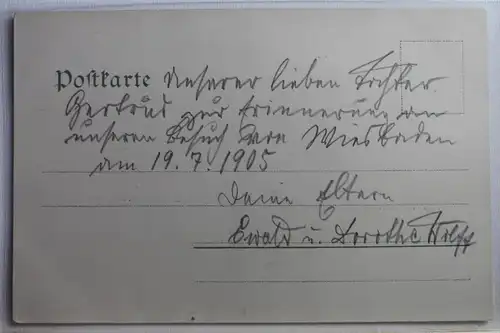 Postkarte Unserer lieben Tochter
Gertrud zur Erinnerung an
unseren Besuch von Wiesbaden
am 19.7.1905
Deine Eltern
Ewald u. Dorothe Wolff